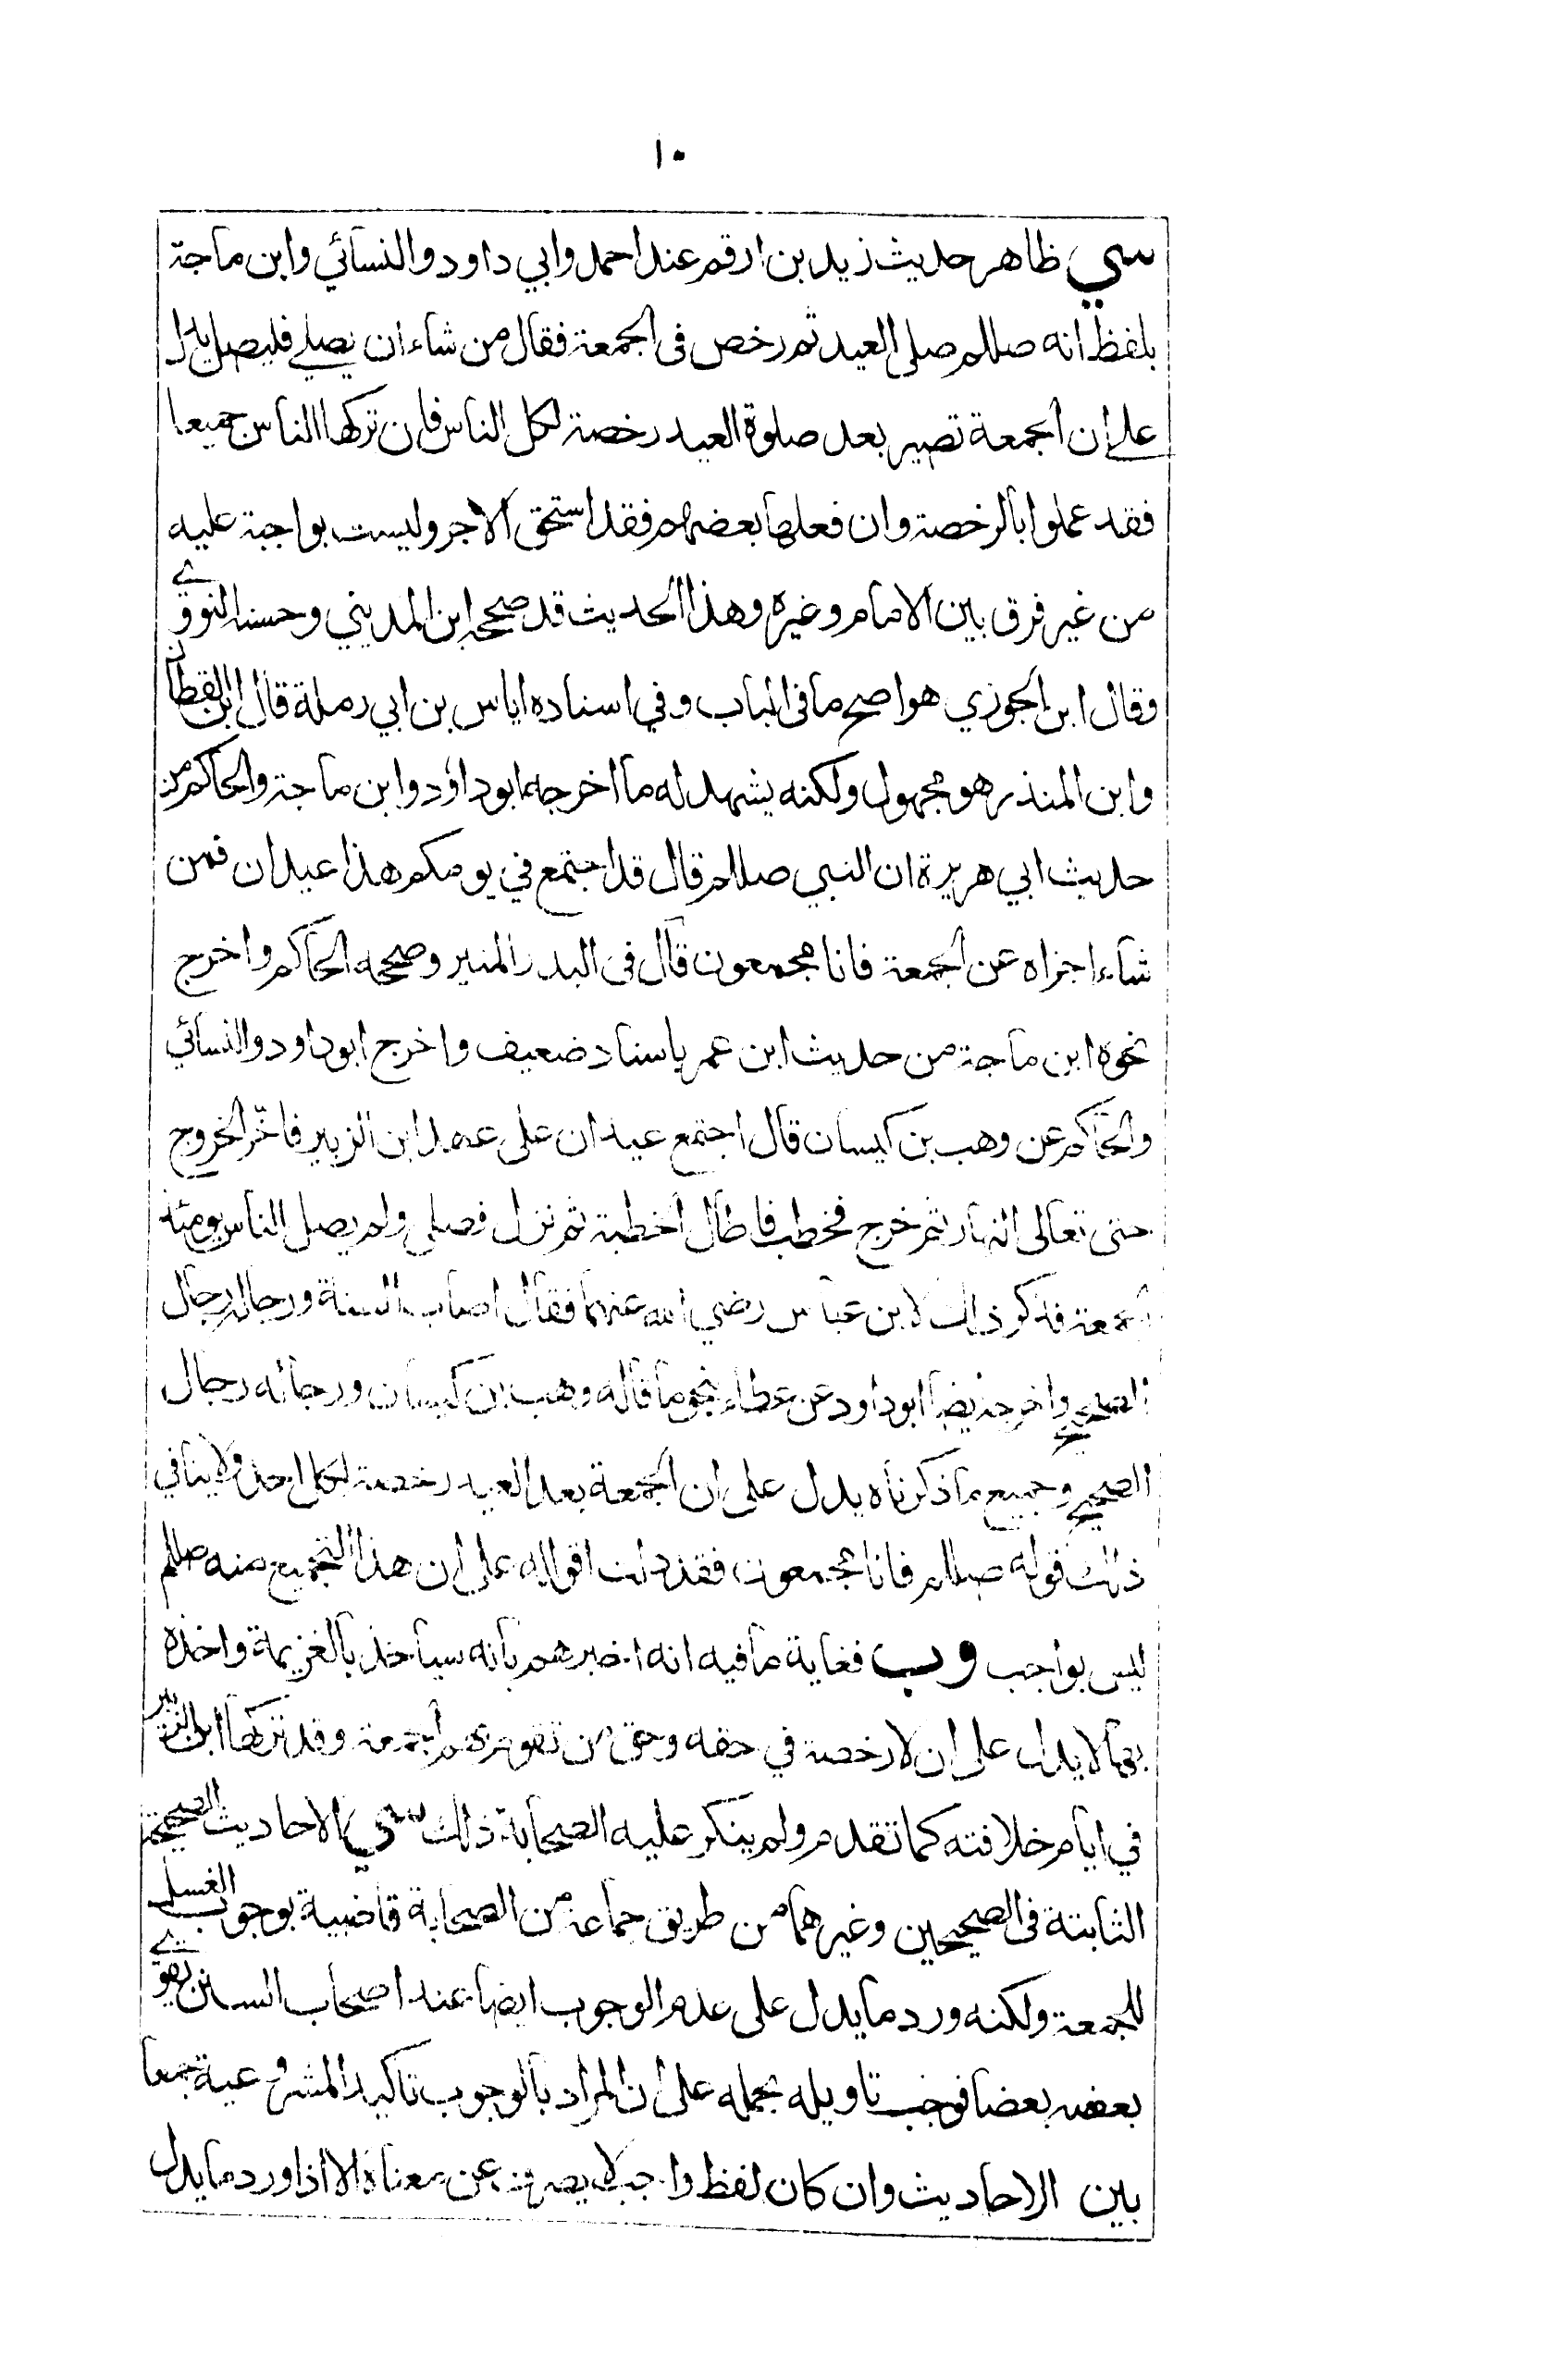 ١٠
سي ظاهر حديث زيد بن ارقم عند احمد وابي داود والنسائي وابن ماجة
بلفظ انه صللم صلى العيد ثم رخص فى الجمعة فقال من شاء ان يصلي فليصل يدل
على ان الجمعة تصير بعد صلوة العيد رخصة لكل الناس فان تركها الناس جميعا
فقد عملوا بالرخصة وان فعلها بعضهم فقد استحق الاجر وليست بواجبة عليه
من غير فرق بين الامام وغيره وهذا الحديث قد صححه ابن المديني وحسنه النووي
وقال ابن الجوزي هو اصح ما فى الباب وفي اسناده اياس بن ابي رملة قال ابن القطان
وابن المنذر هو مجهول ولكنه يشهد له ما اخرجه ابو داؤد وابن ماجة والحاكم من
حديث ابي هريرة ان النبي صللم قال قد اجتمع في يومكم هذا عيدان فمن
شاء اجزاه عن الجمعة فانا مجمعون قال فى البدر المنير وصححه الحاكم واخرج
نحوه ابن ماجة من حديث ابن عمر باسناد ضعيف واخرج ابو داود والنسائي
والحاكم عن وهب بن كيسان قال اجتمع عيدان على عهد ابن الزبير فاخّر الخروج
حتى تعالى النهار ثم خرج فخطب فاطال الخطبة ثم نزل فصلى ولم يصل الناس يومئذ
الجمعة فذكر ذلك لابن عباس رضي الله عنهما فقال اصاب السنة ورجاله رجال
الصحيح واخرجه ايضا ابو داود عن عطاء بنحو ما قاله وهب بن كيسان ورجاله رجال
الصحيح وجميع ما ذكرناه يدل على ان الجمعة بعد العيد رخصة لكل احد ولا ينافي
ذلك قوله صللم فانا مجمعون فقد دلت اقواله على ان هذا التجميع منه صللم
ليس بواجب وب فغاية ما فيه انه اخبرهم بانه سياخذ بالعزيمة واخذه
بها لا يدل على ان لا رخصة في حقه وحق من تقوم بهم الجمعة وقد تركها ابن الزبير
في ايام خلافته كما تقدم ولم ينكر عليه الصحابة ذلك سي الاحاديث الصحيحة
الثابتة فى الصحيحين وغيرهما من طريق جماعة من الصحابة قاضية بوجوب الغسل
للجمعة ولكنه ورد ما يدل على عدم الوجوب ايضا عند اصحاب السنن يقوي
بعضه بعضا فوجب تاويله بحمله على ان المراد بالوجوب تاكيد المشروعية جمعا
بين الاحاديث وان كان لفظ واجب لا يصرف عن معناه الا اذا ورد ما يدل